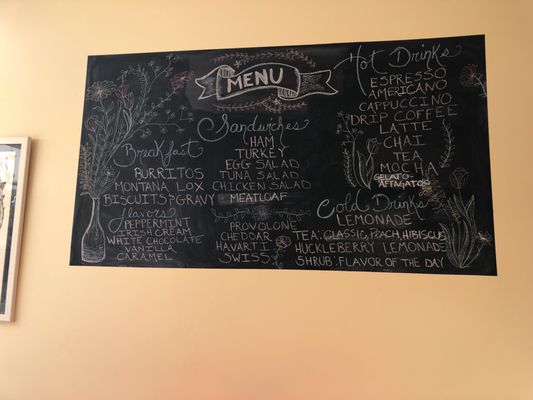 MENU
Breakfast
BURRITOS
MONTANA LOX
BISCUITS & GRAVY
Flavors
PEPPERMINT
IRISH CREAM
WHITE CHOCOLATE
VANILLA
CARAMEL
Sandwiches
HAM
TURKEY
EGG SALAD
TUNA SALAD
CHICKEN SALAD
MEATLOAF
PROVOLONE
CHEDDAR
HAVARTI
SWISS
Hot Drinks
ESPRESSO
AMERICANO
CAPPUCCINO
DRIP COFFEE
LATTE
CHAI
TEA
MOCHA
GELATO-
AFFAGATO
Cold Drinks
LEMONADE
TEA: CLASSIC, PEACH, HIBISCUS
HUCKLEBERRY LEMONADE
SHRUB: FLAVOR OF THE DAY